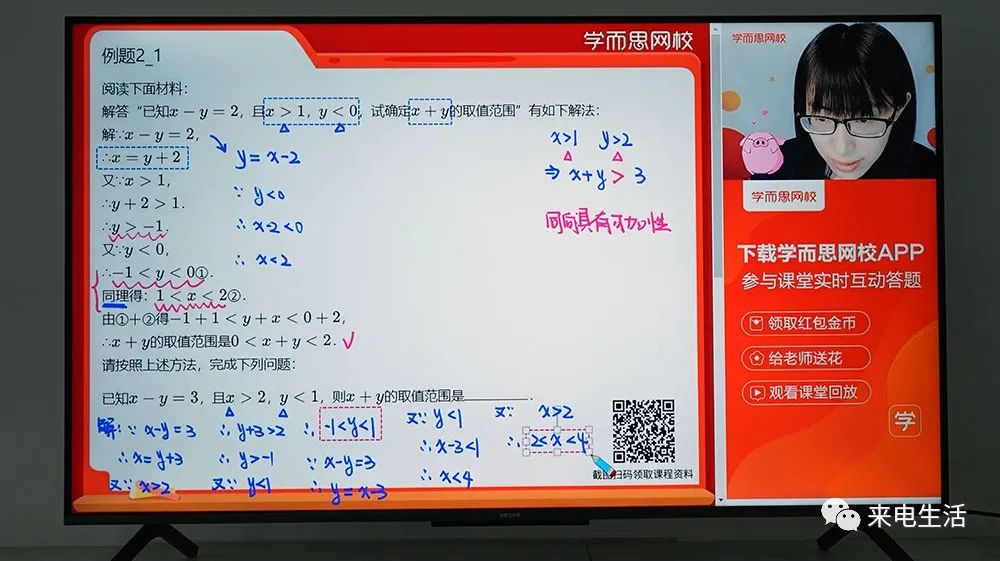 学而思网校
例题2_1
阅读下面材料：
解答“已知x－y＝2，且x＞1，y＜0，试确定x＋y的取值范围”有如下解法：
解∵x－y＝2，
∴x＝y＋2
又∵x＞1，
∴y＋2＞1．
∴y＞－1．
又∵y＜0，
∴－1＜y＜0①．
同理得：1＜x＜2②．
由①＋②得－1＋1＜y＋x＜0＋2，
∴x＋y的取值范围是0＜x＋y＜2．✓
请按照上述方法，完成下列问题：
已知x－y＝3，且x＞2，y＜1，则x＋y的取值范围是________．
y=x-2
∵ y<0
∴ x-2<0
∴ x<2
x>1 y>2
⇒ x+y > 3
同向具有可加性
解：∵ x-y=3
∴ x=y+3
又∵ x>2
∴ y+3>2
∴ y>-1
又∵ y<1
∴ -1<y<1
∵ x-y=3
∴ y=x-3
又∵ y<1
∴ x-3<1
∴ x<4
又∵ x>2
∴ 2<x<4
截图扫码领取课程资料
学而思网校
学而思网校
下载学而思网校APP
参与课堂实时互动答题
领取红包金币
给老师送花
观看课堂回放
学
来电生活